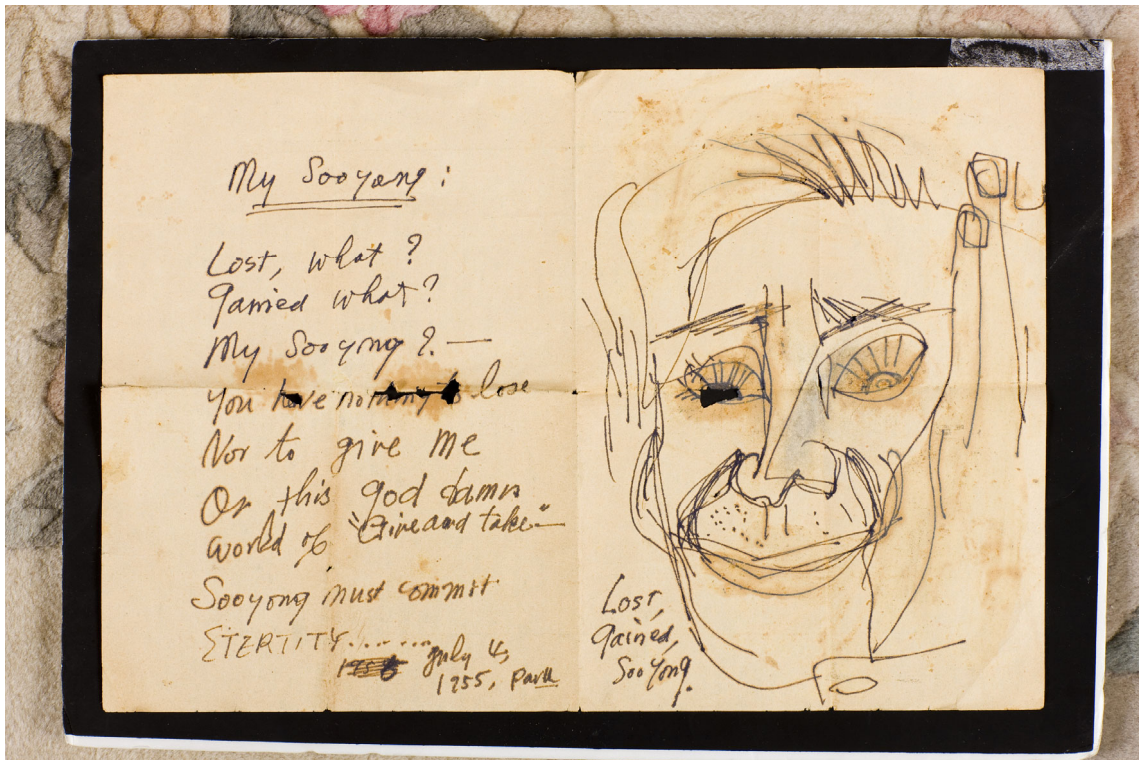 My Sooyong:
Lost, what?
Gained what?
My Sooyong?.—
You have nothing to lose
Nor to give me
On this god damn
world of "Give and take"
Sooyong must commit
ETERTITY.......
July 4,
1955, Park
Lost,
Gained,
Sooyong.